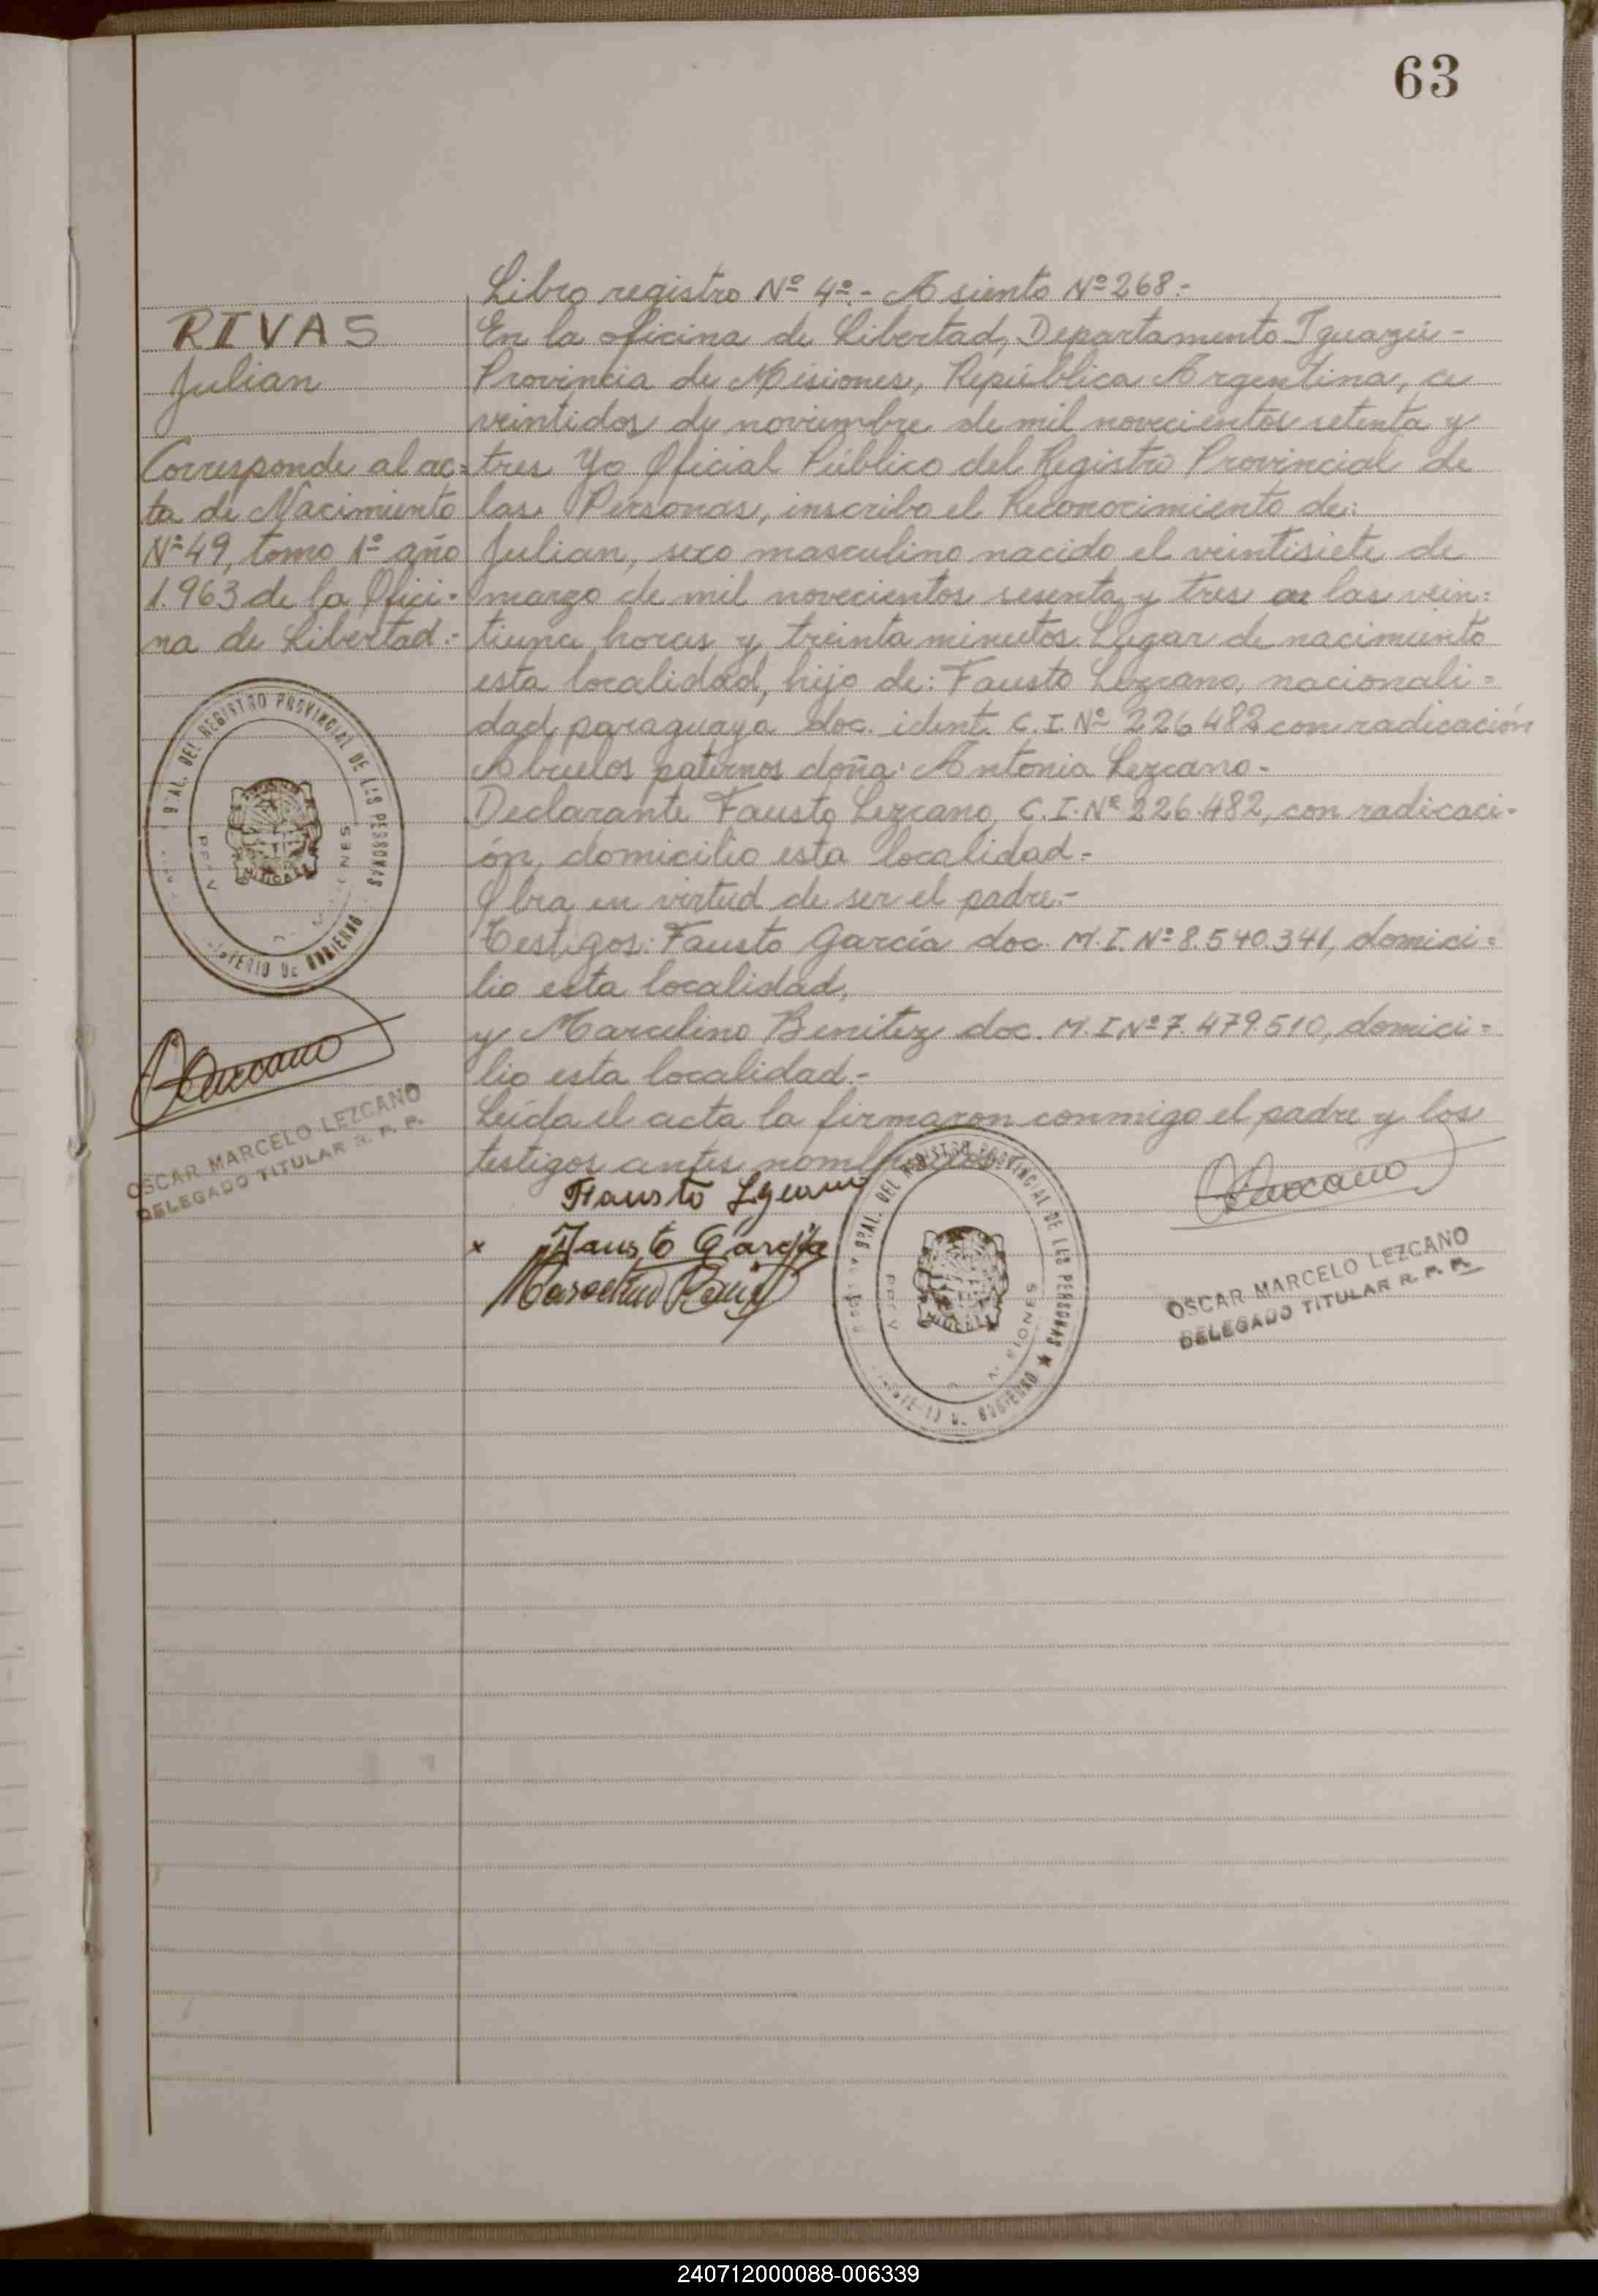 63
RIVAS
Julian
Corresponde al ac=
ta de Nacimiento
Nº 49, tomo 1º año
1.963 de la Ofici-
na de Libertad.-
GRAL. DEL REGISTRO PROVINCIAL DE LAS PERSONAS
OSCAR MARCELO LEZCANO
DELEGADO TITULAR R. P. P.
Libro registro Nº 4º.- Asiento Nº 268.-
En la oficina de Libertad, Departamento Iguazú-
Provincia de Misiones, República Argentina, a
veintidos de noviembre de mil novecientos setenta y
tres Yo Oficial Público del Registro Provincial de
las Personas, inscribo el Reconocimiento de:
Julian, sexo masculino nacido el veintisiete de
marzo de mil novecientos sesenta y tres a las vein=
tiuna horas y treinta minutos. Lugar de nacimiento
esta localidad, hijo de: Fausto Lezcano, nacionali=
dad paraguaya doc. ident. C.I. Nº 226.482 con radicación
Abuelos paternos doña: Antonia Lezcano-
Declarante Fausto Lezcano, C.I. Nº 226.482, con radicaci-
ón, domicilio esta localidad.-
Obra en virtud de ser el padre.-
Testigos: Fausto García doc. M.I. Nº 8.540.341, domici=
lio esta localidad,
y Marcelino Benitez doc. M.I. Nº 7.479.510, domici=
lio esta localidad.-
Leída el acta la firmaron conmigo el padre y los
testigos antes nombrados
Fausto Lezcano
x Fausto García
DEL REGISTRO PROVINCIAL DE LAS PERSONAS
OSCAR MARCELO LEZCANO
DELEGADO TITULAR R. P. P.
240712000088-006339